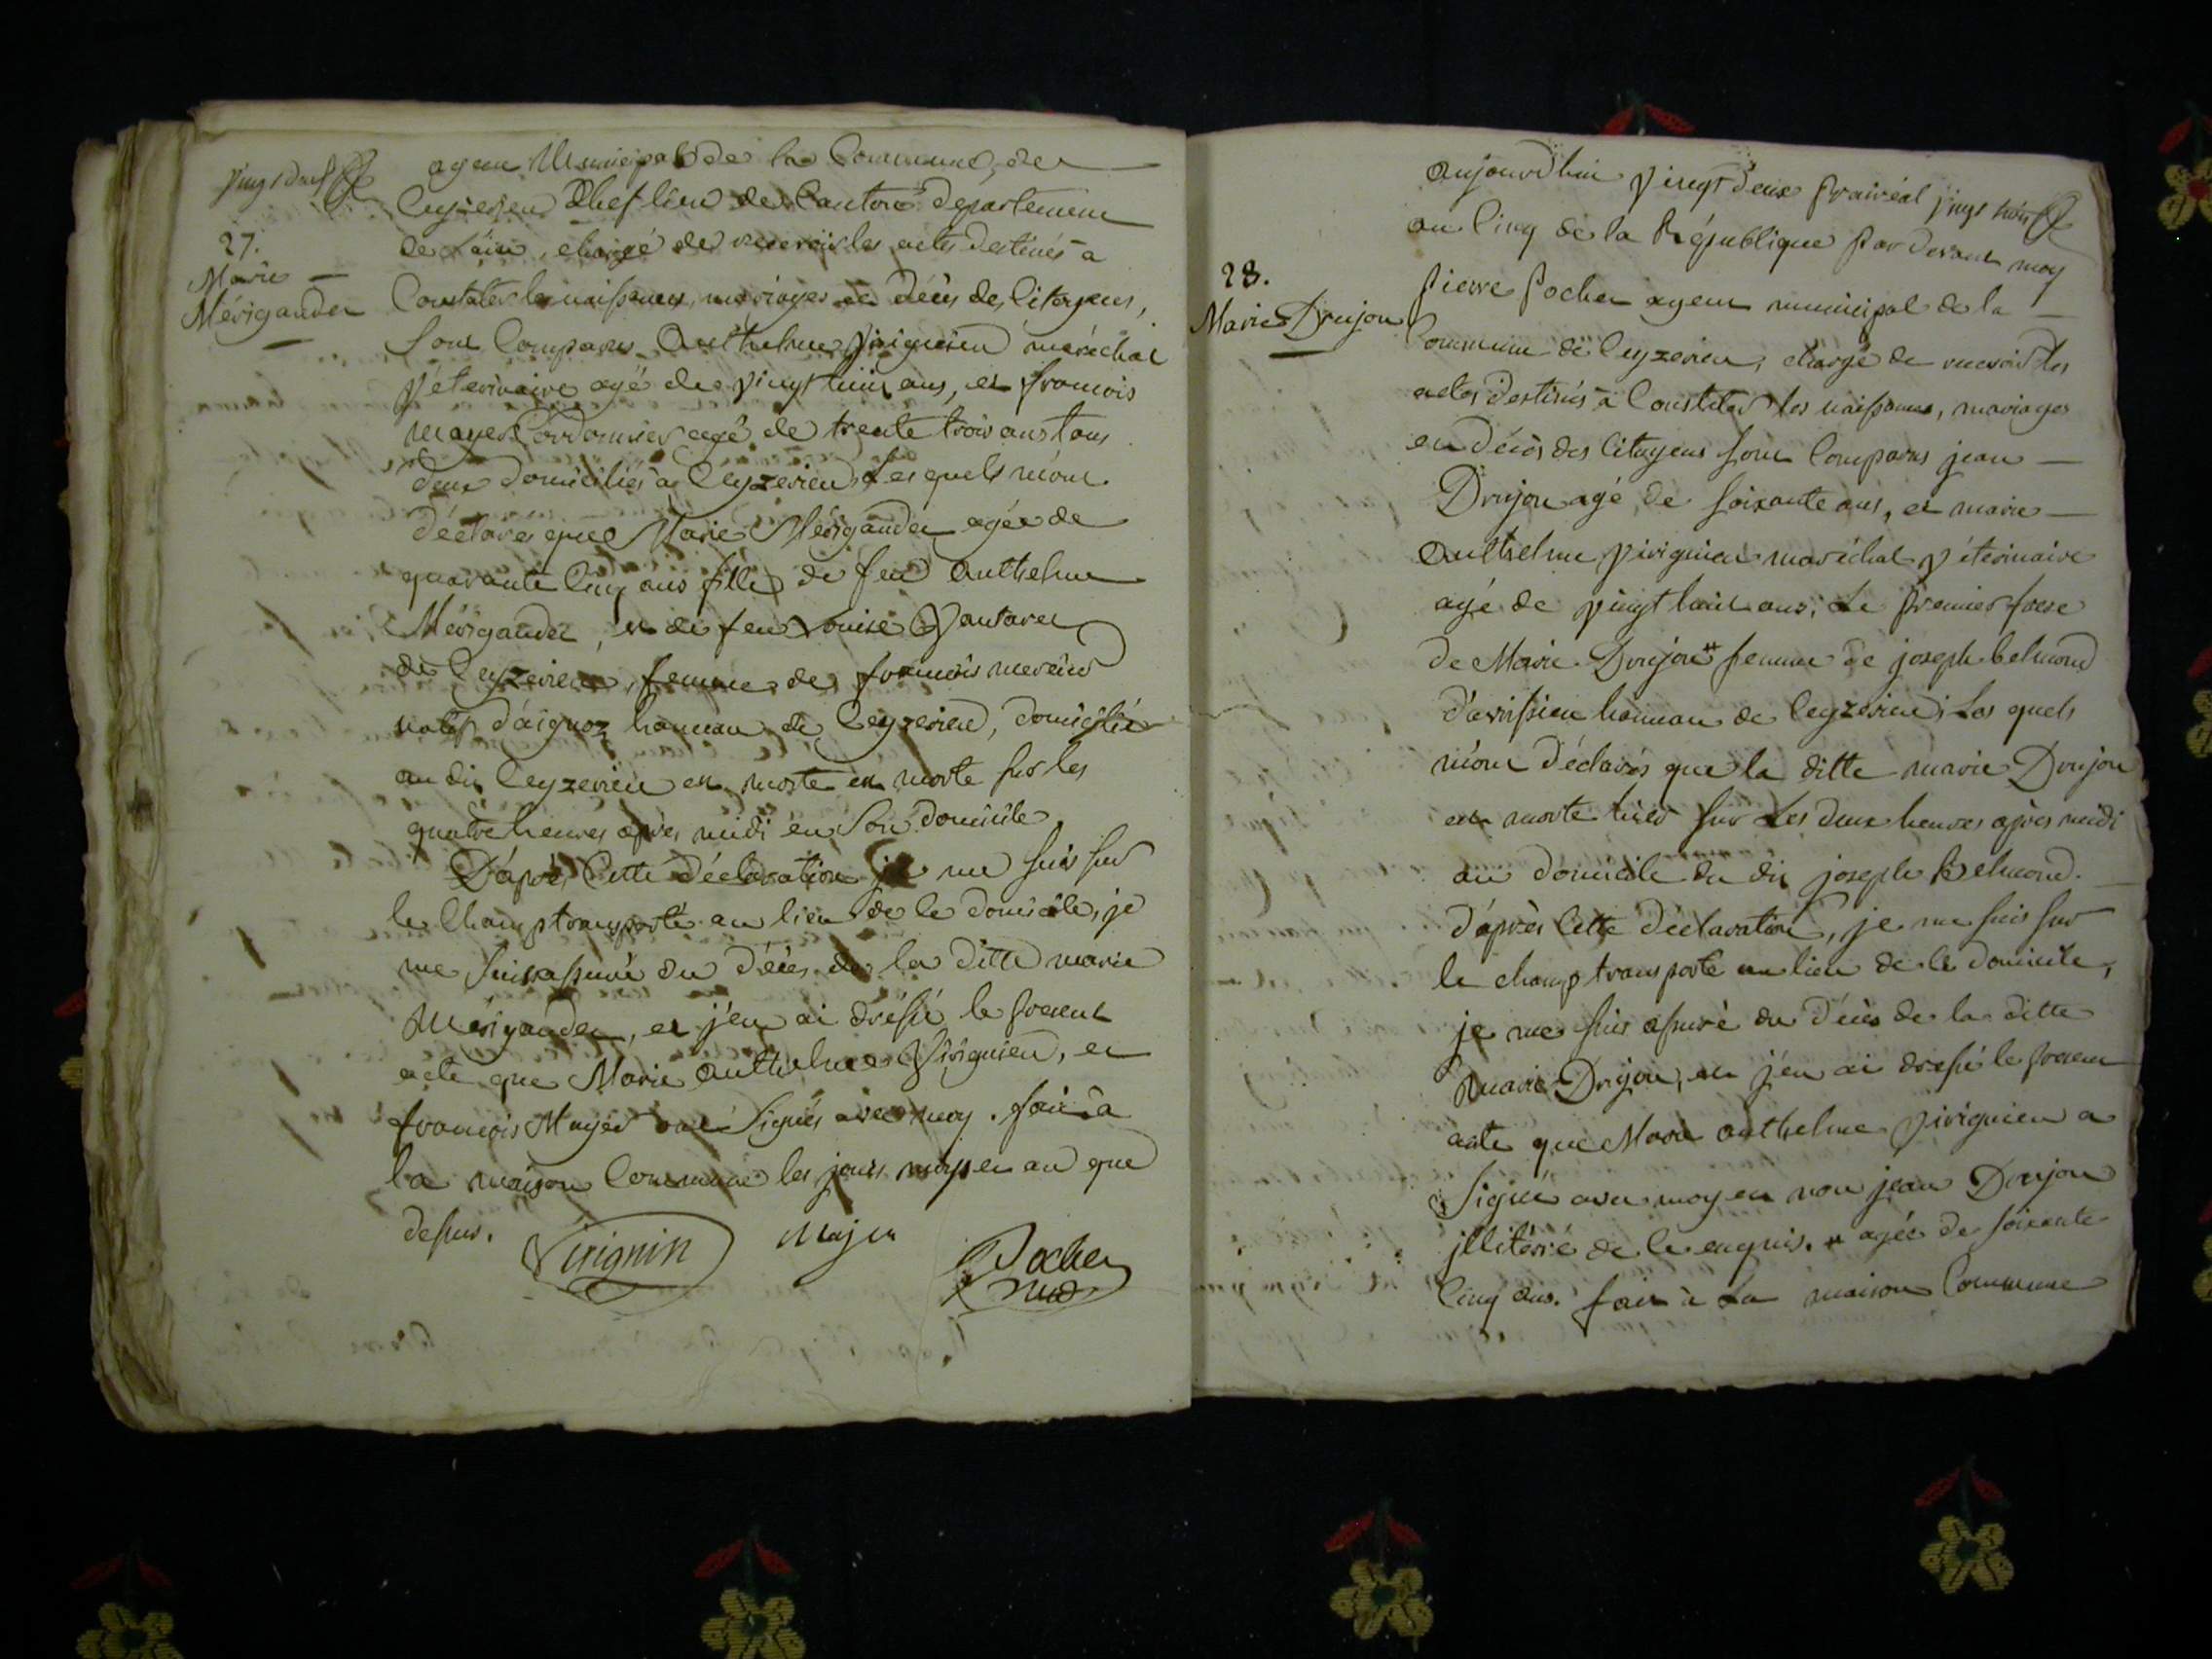 vingt deux
agent Municipal de la Commune de
Ceyzerieu Chef lieu de Canton département
de l'ain, chargé de recevoir les actes destinés à
27.
Marie
Mérigander
Constater les naissances, mariages et décès des Citoyens,
sont Comparus Anthelme Virignien maréchal
véterinaire agé de vingt huit ans, et francois
mayer Cordonnier agé de trente trois ans tous
deux domiciliés à Ceyzerieu, Lesquels m'ont
déclarés que Marie Mérigander agée de
quarante Cinq ans fille de feu Anthelme
Mérigander, et de feu Louise
de Ceyzerieu, femme de francois
natif d'aignoz hameau de Ceyzerieu, domicilié
au dit Ceyzerieu est morte est morte sur les
quatre heures après midi en son domicile
D'après Cette déclaration je me suis sur
le Champ transporté au lieu de Ce domicile, je
me suis assuré du décès de la ditte marie
Mérigander, et j'en ai dréssé le present
acte que Marie Anthelme Virignien, et
francois Mayer ont Signés avec moy. fait à
la maison Commune les jours, moys et an que
dessus.
Virignin Majer Pochet
aujourdhui vingt deux prairéal vingt trois
an Cinq de la République par devant moy
28.
Marie Drujon
Pierre Pochet agent municipal de la
Commune de Ceyzerieu, chargé de recevoir les
actes destinés à Constater les naissances, mariages
et décès des Citoyens sont Comparus jean
Drujon agé de soixante ans, et marie
Anthelme virignien maréchal véterinaire
agé de vingt huit ans; Le premier frere
de Marie Drujon # femme de joseph belmond
d'avrissieu hameau de Ceyzerieu; Les quels
m'ont déclarés que la ditte marie Drujon
est morte hier sur Les deux heures après midi
au domicile du dit joseph Belmond.
d'après Cette déclaration, je me suis sur
le champ transporté au lieu de Ce domicile,
je me suis assuré du décès de la ditte
marie Drujon, et j'en ai dressé le present
acte que Marie anthelme virignien a
Signé avec moy et non jean Drujon
jllitéré de Ce enquis. # agée de soixante
Cinq ans. fait à La maison Commune